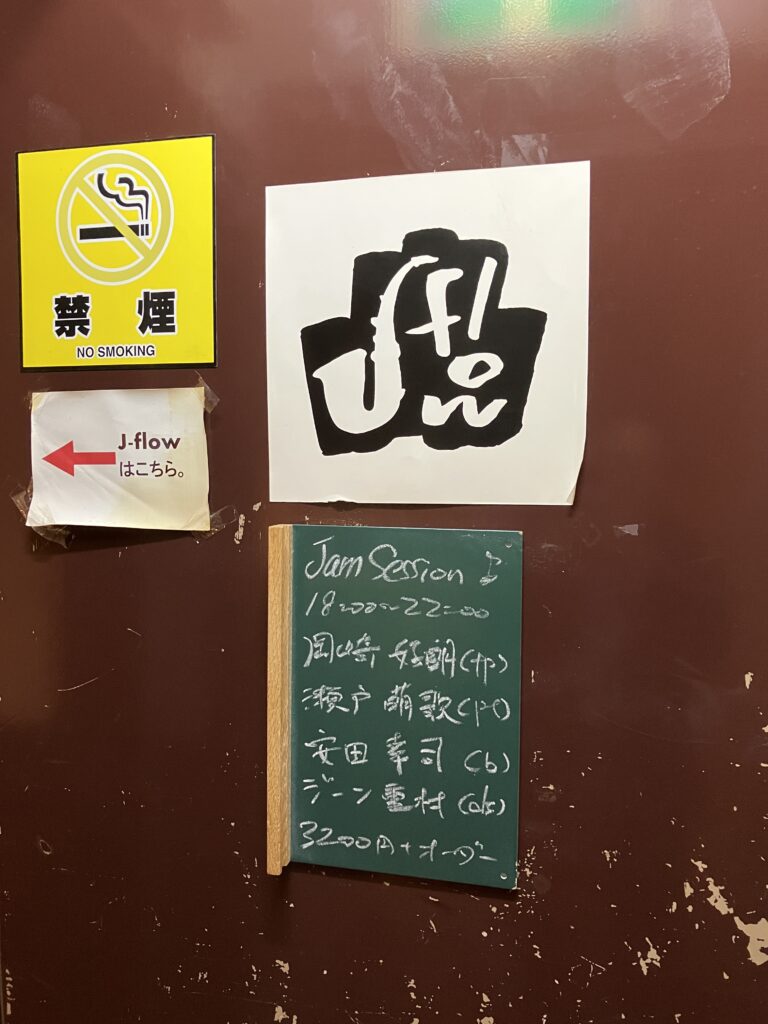 禁煙
NO SMOKING
J-flow
はこちら。
J flow
Jam Session ♪
18:00~22:00
岡崎 好朗(tp)
瀬戸 萌歌(pf)
安田 幸司(b)
ジーン重村(ds)
3200円+オーダー